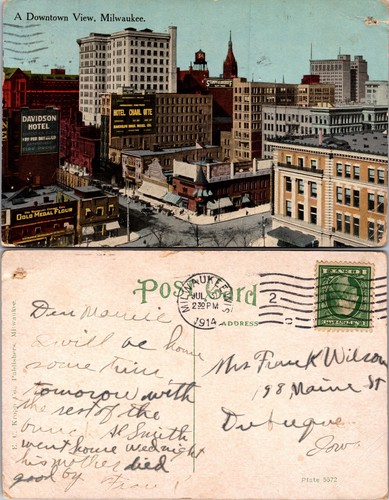 A Downtown View, Milwaukee.
DAVIDSON
HOTEL
HOTEL
GOLD MEDAL FLOUR
Post Card
MILWAUKEE, WIS
JUL
2 30 PM
1914
2
ADDRESS
E. C. Kropp Publishers, Milwaukee.
Dear
I will be home
some time
tomorrow with
the rest of the
bunch Al Smith
went home wednight
his mother died
good by
Mrs Frank Wilson
198 Maine St
Dubuque
Iow.
Plate 5572